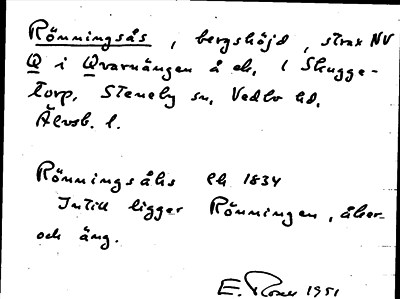 Rönningsås, bergshöjd, strax NV
Q i Qvarnängen å ek. i Skugge-
torp, Steneby sn, Vedbo hd,
Älvsb. l.
Rönningsåhs Ek 1834
Intill ligger Rönningen, åker-
och äng.
E. Rosell 1951